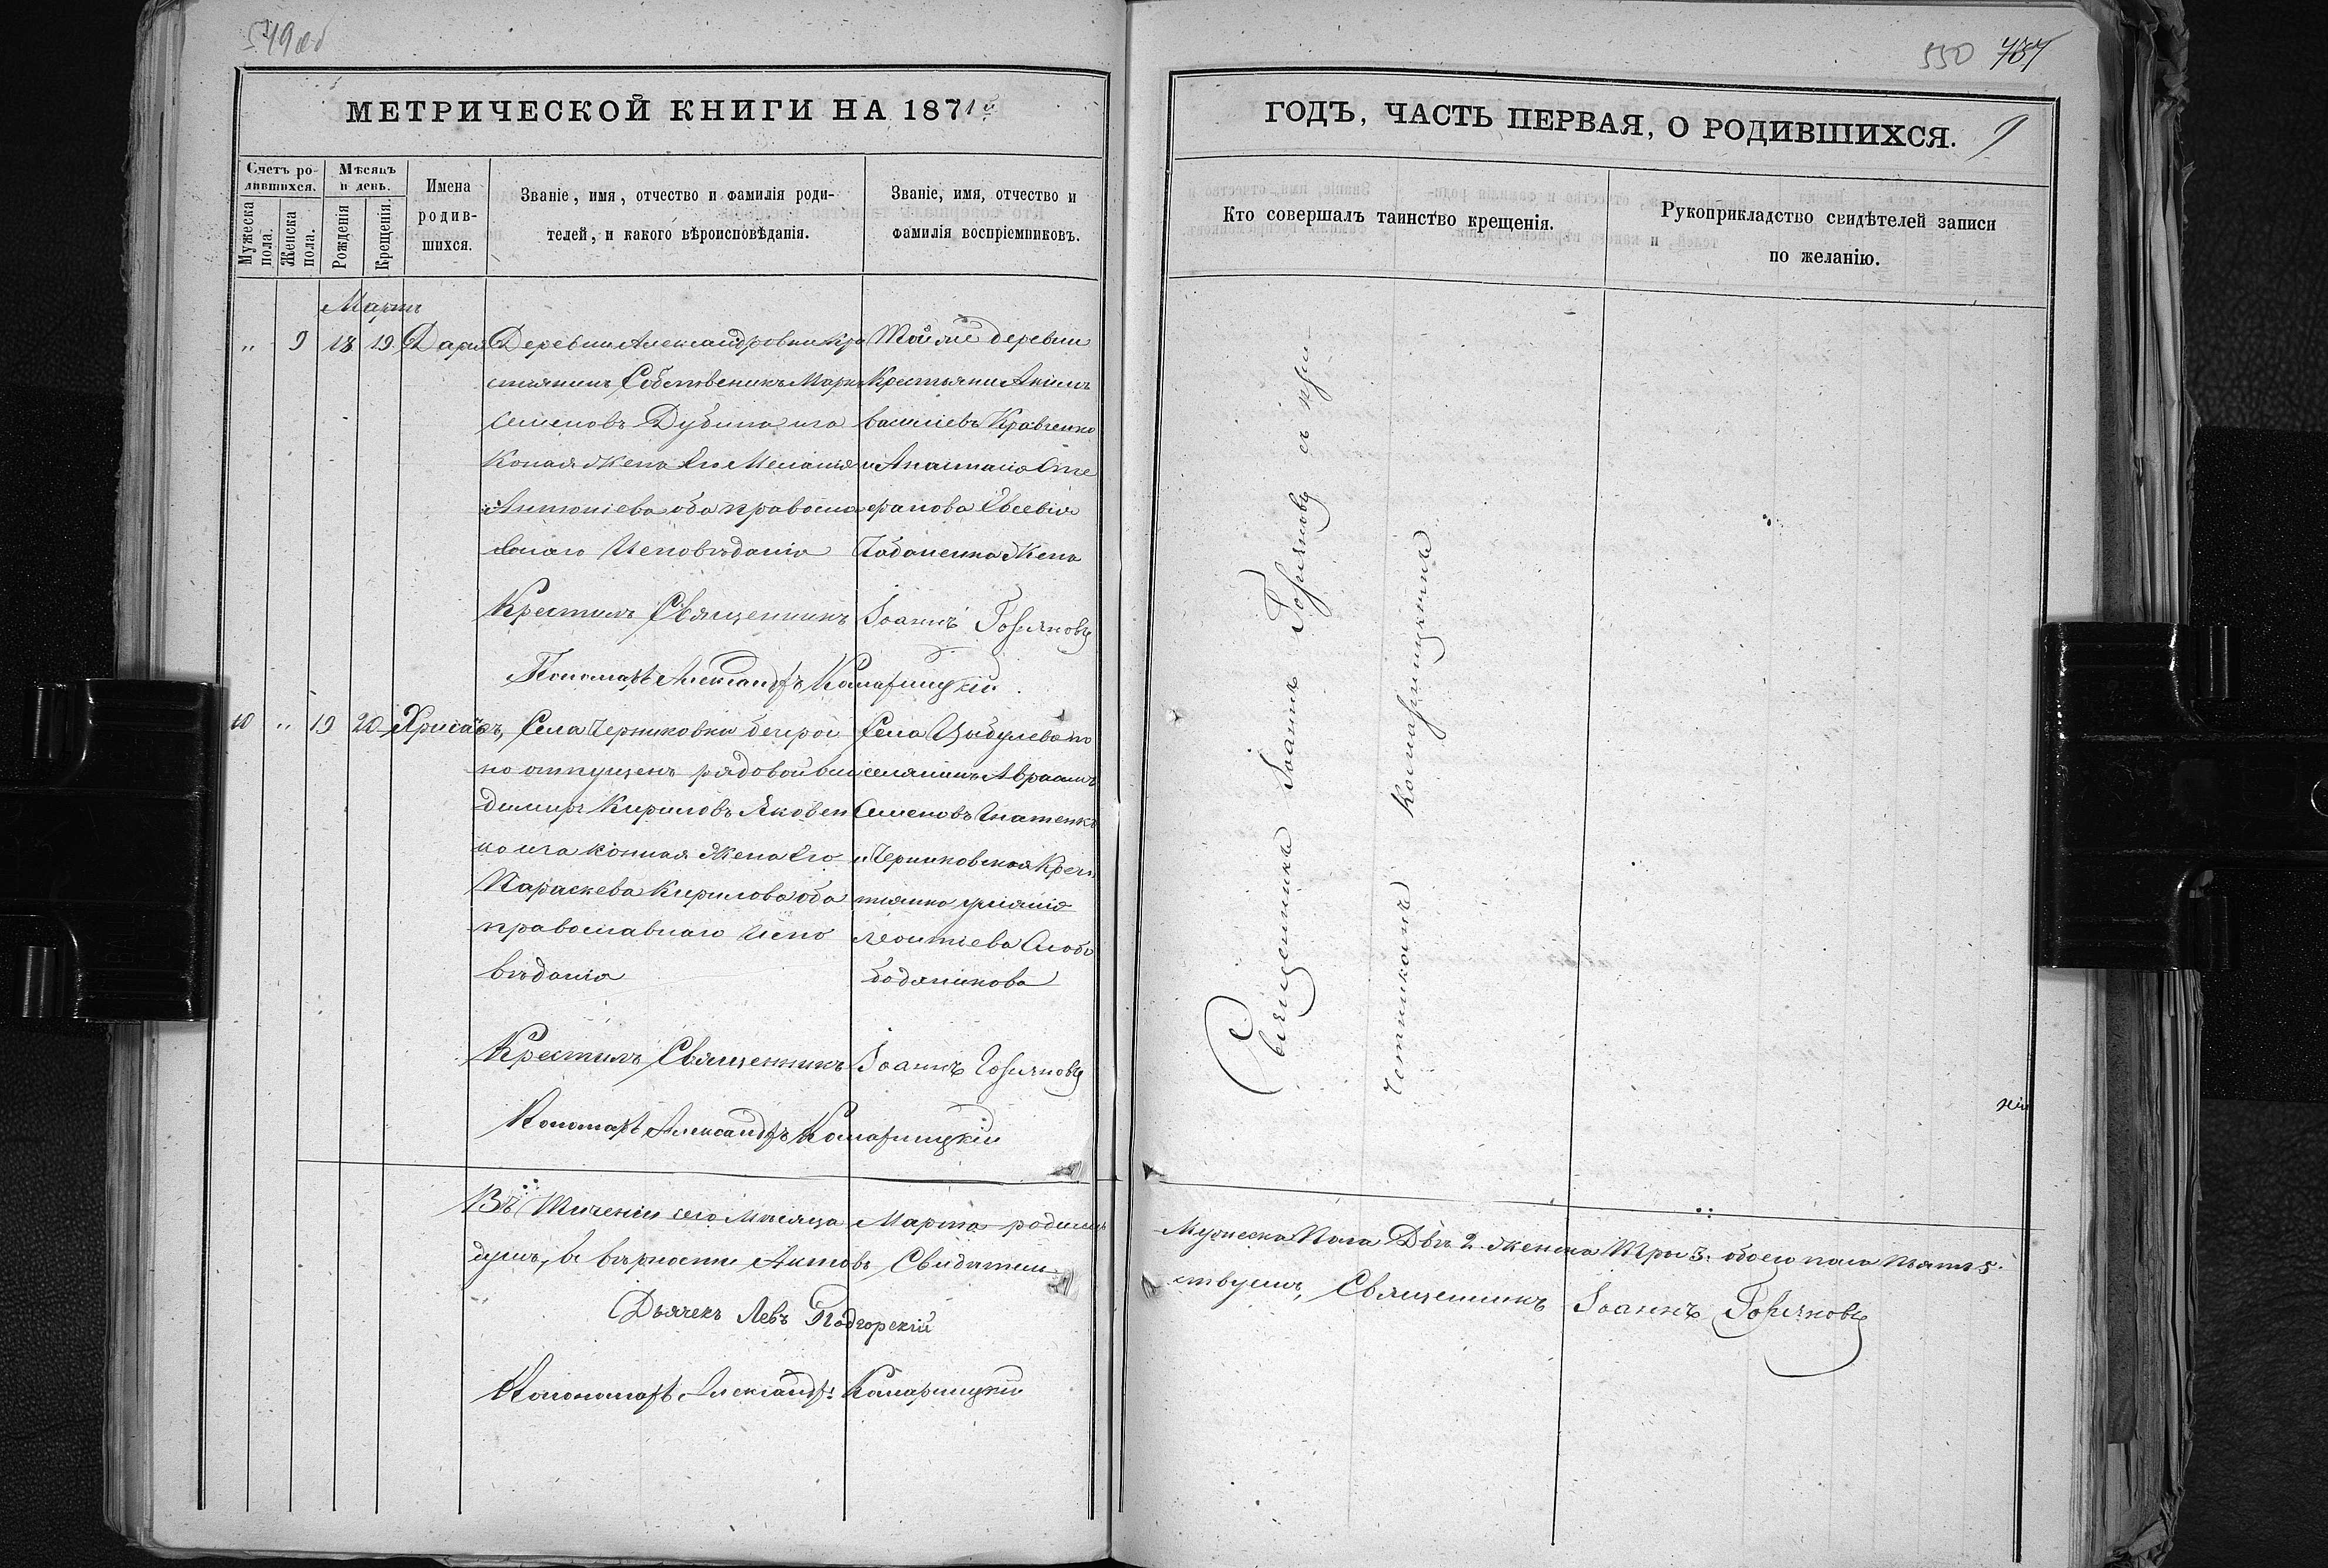 549 об
МЕТРИЧЕСКОЙ КНИГИ НА 1871й
Счетъ ро-
дившихся.
Мѣсяцъ
и день.
Имена
родив-
шихся.
Званіе, имя, отчество и фамилія роди-
телей, и какого вѣроисповѣданія.
Званіе, имя, отчество и
фамилія воспріемниковъ.
Мужеска пола.
Женска пола.
Рожденія
Крещенія.
Мартъ
„ 9 18 19 Дарія
Деревни Александровки Кре
стьянинъ Собственикъ Марко
Семеновъ Дубина и за
коная Жена его Меланія
Антоніева оба православ
наго Исповѣданія
Той же деревни
Крестьянинъ Акимъ
Василіевъ Кравченко
и Анастасія Сте
фанова Евсевія
Чабаненка Жена
Крестилъ Священникъ Іоаннъ
Пономарь Александръ Комарницкій
10 „ 19 20 Хрисанѳъ,
Села Черниковки безсроч
но отпущенъ рядовой Вла
димиръ Кириловъ Яковен
ко и за конная Жена его
Параскева Кирилова оба
православнаго Испо
вѣданія
Села Цибулева по
селянинъ Авраамъ
Семеновъ Игнатенко
и Черниковская Крес
тьянка
Леонтіева Слобо
бодяникова
Крестилъ Священникъ Іоаннъ
Пономарь Александръ Комарницкій
Въ Теченіи сего Мѣсяца Марта родилось
душъ, в вѣрности Актовъ Свидѣтель
Дьячекъ Левъ Подгорскій
Пономарь Александръ Комарницкій
550 757
ГОДЪ, ЧАСТЬ ПЕРВАЯ, О РОДИВШИХСЯ. 9
Кто совершалъ таинство крещенія.
Рукоприкладство свидѣтелей записи
по желанію.
Священникъ Іоаннъ съ при
Комарницкимъ
Мужеска Пола Двѣ 2. Женска Три 3. обоего пола Пять 5.
ствуемъ, Священникъ Іоаннъ